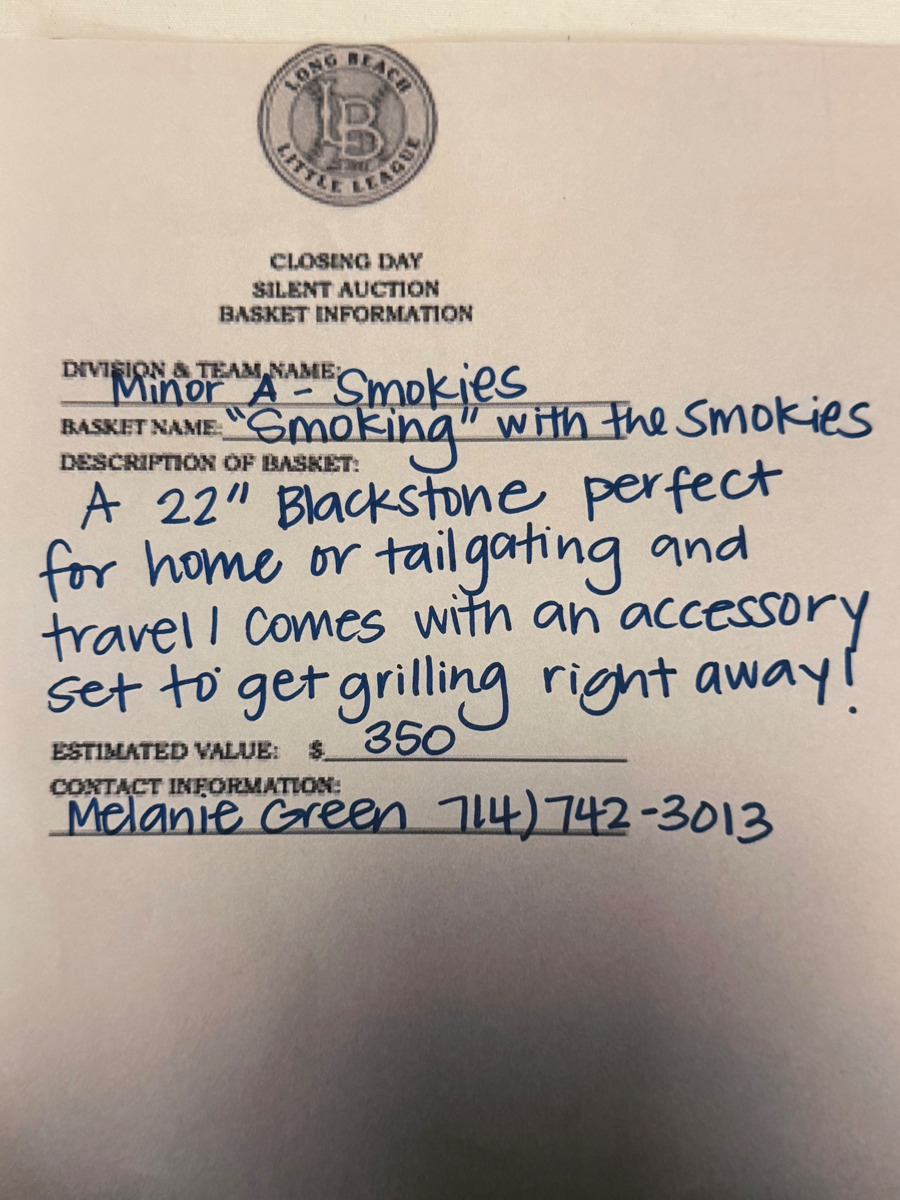 LONG BEACH
LB
LITTLE LEAGUE
CLOSING DAY
SILENT AUCTION
BASKET INFORMATION
DIVISION & TEAM NAME:
Minor A - Smokies
BASKET NAME: "Smoking" with the Smokies
DESCRIPTION OF BASKET:
A 22" Blackstone perfect
for home or tailgating and
travel! Comes with an accessory
set to get grilling right away!
ESTIMATED VALUE: $ 350
CONTACT INFORMATION:
Melanie Green 714)742-3013